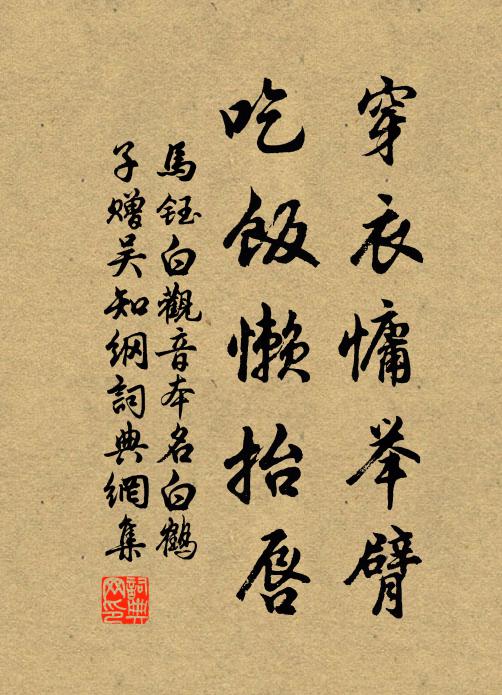 穿衣慵举臂
吃飯懒抬唇
馬鈺白觀音本名白鶴
子赠吴知纲詞典網集
詞典网印